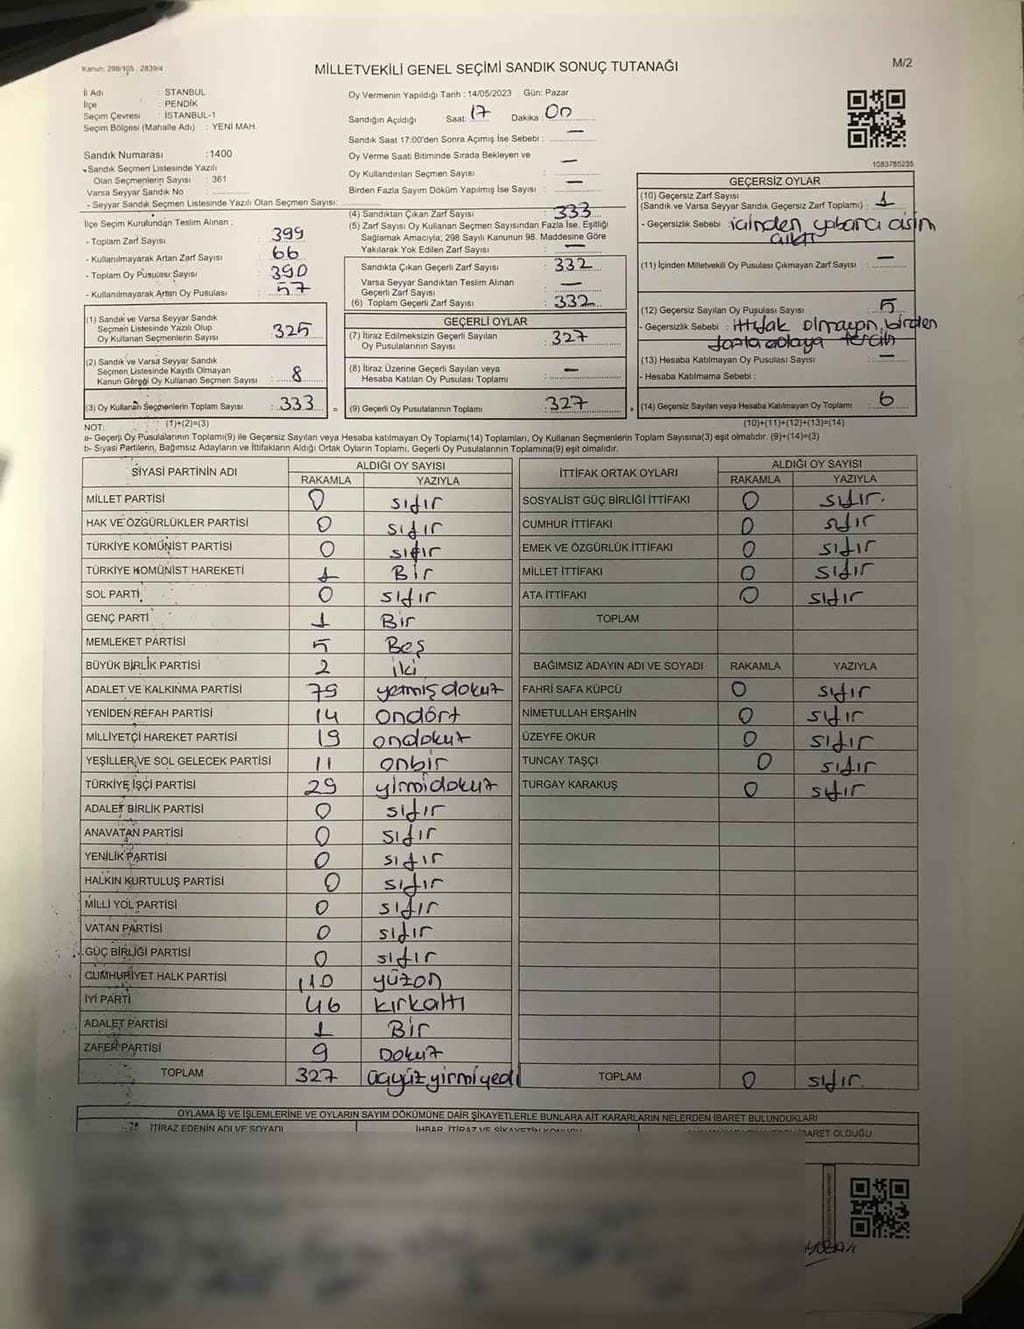 Kanun: 298/105, 2839/4
MİLLETVEKİLİ GENEL SEÇİMİ SANDIK SONUÇ TUTANAĞI
M/2
İl Adı : STANBUL
İlçe : PENDİK
Seçim Çevresi : İSTANBUL-1
Seçim Bölgesi (Mahalle Adı) : YENİ MAH.
Sandık Numarası : 1400
Sandık Seçmen Listesinde Yazılı
Olan Seçmenlerin Sayısı : 361
Varsa Seyyar Sandık No
- Seyyar Sandık Seçmen Listesinde Yazılı Olan Seçmen Sayısı:
Oy Vermenin Yapıldığı Tarih : 14/05/2023 Gün: Pazar
Sandığın Açıldığı Saat: 17 Dakika : 00
Sandık Saat 17:00'den Sonra Açımış İse Sebebi : —
Oy Verme Saati Bitiminde Sırada Bekleyen ve
Oy Kullandırılan Seçmen Sayısı : —
Birden Fazla Sayım Döküm Yapılmış İse Sayısı : —
1083785235
İlçe Seçim Kurulundan Teslim Alınan ;
- Toplam Zarf Sayısı : 399
- Kullanılmayarak Artan Zarf Sayısı : 66
- Toplam Oy Pusulası Sayısı : 390
- Kullanılmayarak Artan Oy Pusulası : 57
(1) Sandık ve Varsa Seyyar Sandık
Seçmen Listesinde Yazılı Olup
Oy Kullanan Seçmenlerin Sayısı : 325
(2) Sandık ve Varsa Seyyar Sandık
Seçmen Listesinde Kayıtlı Olmayan
Kanun Gereği Oy Kullanan Seçmen Sayısı : 8
(3) Oy Kullanan Seçmenlerin Toplam Sayısı : 333
(4) Sandıktan Çıkan Zarf Sayısı : 333
(5) Zarf Sayısı Oy Kullanan Seçmen Sayısından Fazla İse, Eşitliği
Sağlamak Amacıyla; 298 Sayılı Kanunun 98. Maddesine Göre
Yakılarak Yok Edilen Zarf Sayısı : —
Sandıkta Çıkan Geçerli Zarf Sayısı : 332
Varsa Seyyar Sandıktan Teslim Alınan
Geçerli Zarf Sayısı : —
(6) Toplam Geçerli Zarf Sayısı : 332
GEÇERLİ OYLAR
(7) İtiraz Edilmeksizin Geçerli Sayılan
Oy Pusulalarının Sayısı : 327
(8) İtiraz Üzerine Geçerli Sayılan veya
Hesaba Katılan Oy Pusulası Toplamı : —
= (9) Geçerli Oy Pusulalarının Toplamı : 327
GEÇERSİZ OYLAR
(10) Geçersiz Zarf Sayısı : 1
(Sandık ve Varsa Seyyar Sandık Geçersiz Zarf Toplamı)
- Geçersizlik Sebebi : içinden yabancı cisim
çıktı
(11) İçinden Milletvekili Oy Pusulası Çıkmayan Zarf Sayısı : —
(12) Geçersiz Sayılan Oy Pusulası Sayısı : 5
- Geçersizlik Sebebi : ittifak olmayan, birden
fazla adaya tercih
(13) Hesaba Katılmayan Oy Pusulası Sayısı : —
- Hesaba Katılmama Sebebi :
+ (14) Geçersiz Sayılan veya Hesaba Katılmayan Oy Toplamı : 6
NOT: (1)+(2)=(3)
(10)+(11)+(12)+(13)=(14)
a- Geçerli Oy Pusulalarının Toplamı(9) ile Geçersiz Sayılan veya Hesaba katılmayan Oy Toplamı(14) Toplamları, Oy Kullanan Seçmenlerin Toplam Sayısına(3) eşit olmalıdır. (9)+(14)=(3)
b- Siyasi Partilerin, Bağımsız Adayların ve İttifakların Aldığı Ortak Oyların Toplamı, Geçerli Oy Pusulalarının Toplamına(9) eşit olmalıdır.
SİYASİ PARTİNİN ADI ALDIĞI OY SAYISI
RAKAMLA YAZIYLA
MİLLET PARTİSİ 0 sıfır
HAK VE ÖZGÜRLÜKLER PARTİSİ 0 sıfır
TÜRKİYE KOMÜNİST PARTİSİ 0 sıfır
TÜRKİYE KOMÜNİST HAREKETİ 1 Bir
SOL PARTİ 0 sıfır
GENÇ PARTİ 1 Bir
MEMLEKET PARTİSİ 5 Beş
BÜYÜK BİRLİK PARTİSİ 2 iki
ADALET VE KALKINMA PARTİSİ 79 yetmişdokuz
YENİDEN REFAH PARTİSİ 14 ondört
MİLLİYETÇİ HAREKET PARTİSİ 19 ondokuz
YEŞİLLER VE SOL GELECEK PARTİSİ 11 onbir
TÜRKİYE İŞÇİ PARTİSİ 29 yirmidokuz
ADALET BİRLİK PARTİSİ 0 sıfır
ANAVATAN PARTİSİ 0 sıfır
YENİLİK PARTİSİ 0 sıfır
HALKIN KURTULUŞ PARTİSİ 0 sıfır
MİLLİ YOL PARTİSİ 0 sıfır
VATAN PARTİSİ 0 sıfır
GÜÇ BİRLİĞİ PARTİSİ 0 sıfır
CUMHURİYET HALK PARTİSİ 110 yüzon
İYİ PARTİ 46 kırkaltı
ADALET PARTİSİ 1 Bir
ZAFER PARTİSİ 9 Dokuz
TOPLAM 327 üçyüzyirmiyedi
İTTİFAK ORTAK OYLARI ALDIĞI OY SAYISI
RAKAMLA YAZIYLA
SOSYALİST GÜÇ BİRLİĞİ İTTİFAKI 0 sıfır.
CUMHUR İTTİFAKI 0 sıfır
EMEK VE ÖZGÜRLÜK İTTİFAKI 0 sıfır
MİLLET İTTİFAKI 0 sıfır
ATA İTTİFAKI 0 sıfır
TOPLAM
BAĞIMSIZ ADAYIN ADI VE SOYADI RAKAMLA YAZIYLA
FAHRİ SAFA KÜPCÜ 0 sıfır
NİMETULLAH ERŞAHİN 0 sıfır
ÜZEYFE OKUR 0 sıfır
TUNCAY TAŞÇI 0 sıfır
TURGAY KARAKUŞ 0 sıfır
TOPLAM 0 sıfır
OYLAMA İŞ VE İŞLEMLERİNE VE OYLARIN SAYIM DÖKÜMÜNE DAİR ŞİKAYETLERLE BUNLARA AİT KARARLARIN NELERDEN İBARET BULUNDUKLARI
İTİRAZ EDENİN ADI VE SOYADI İHBAR, İTİRAZ VE ŞİKAYETİN KONUSU